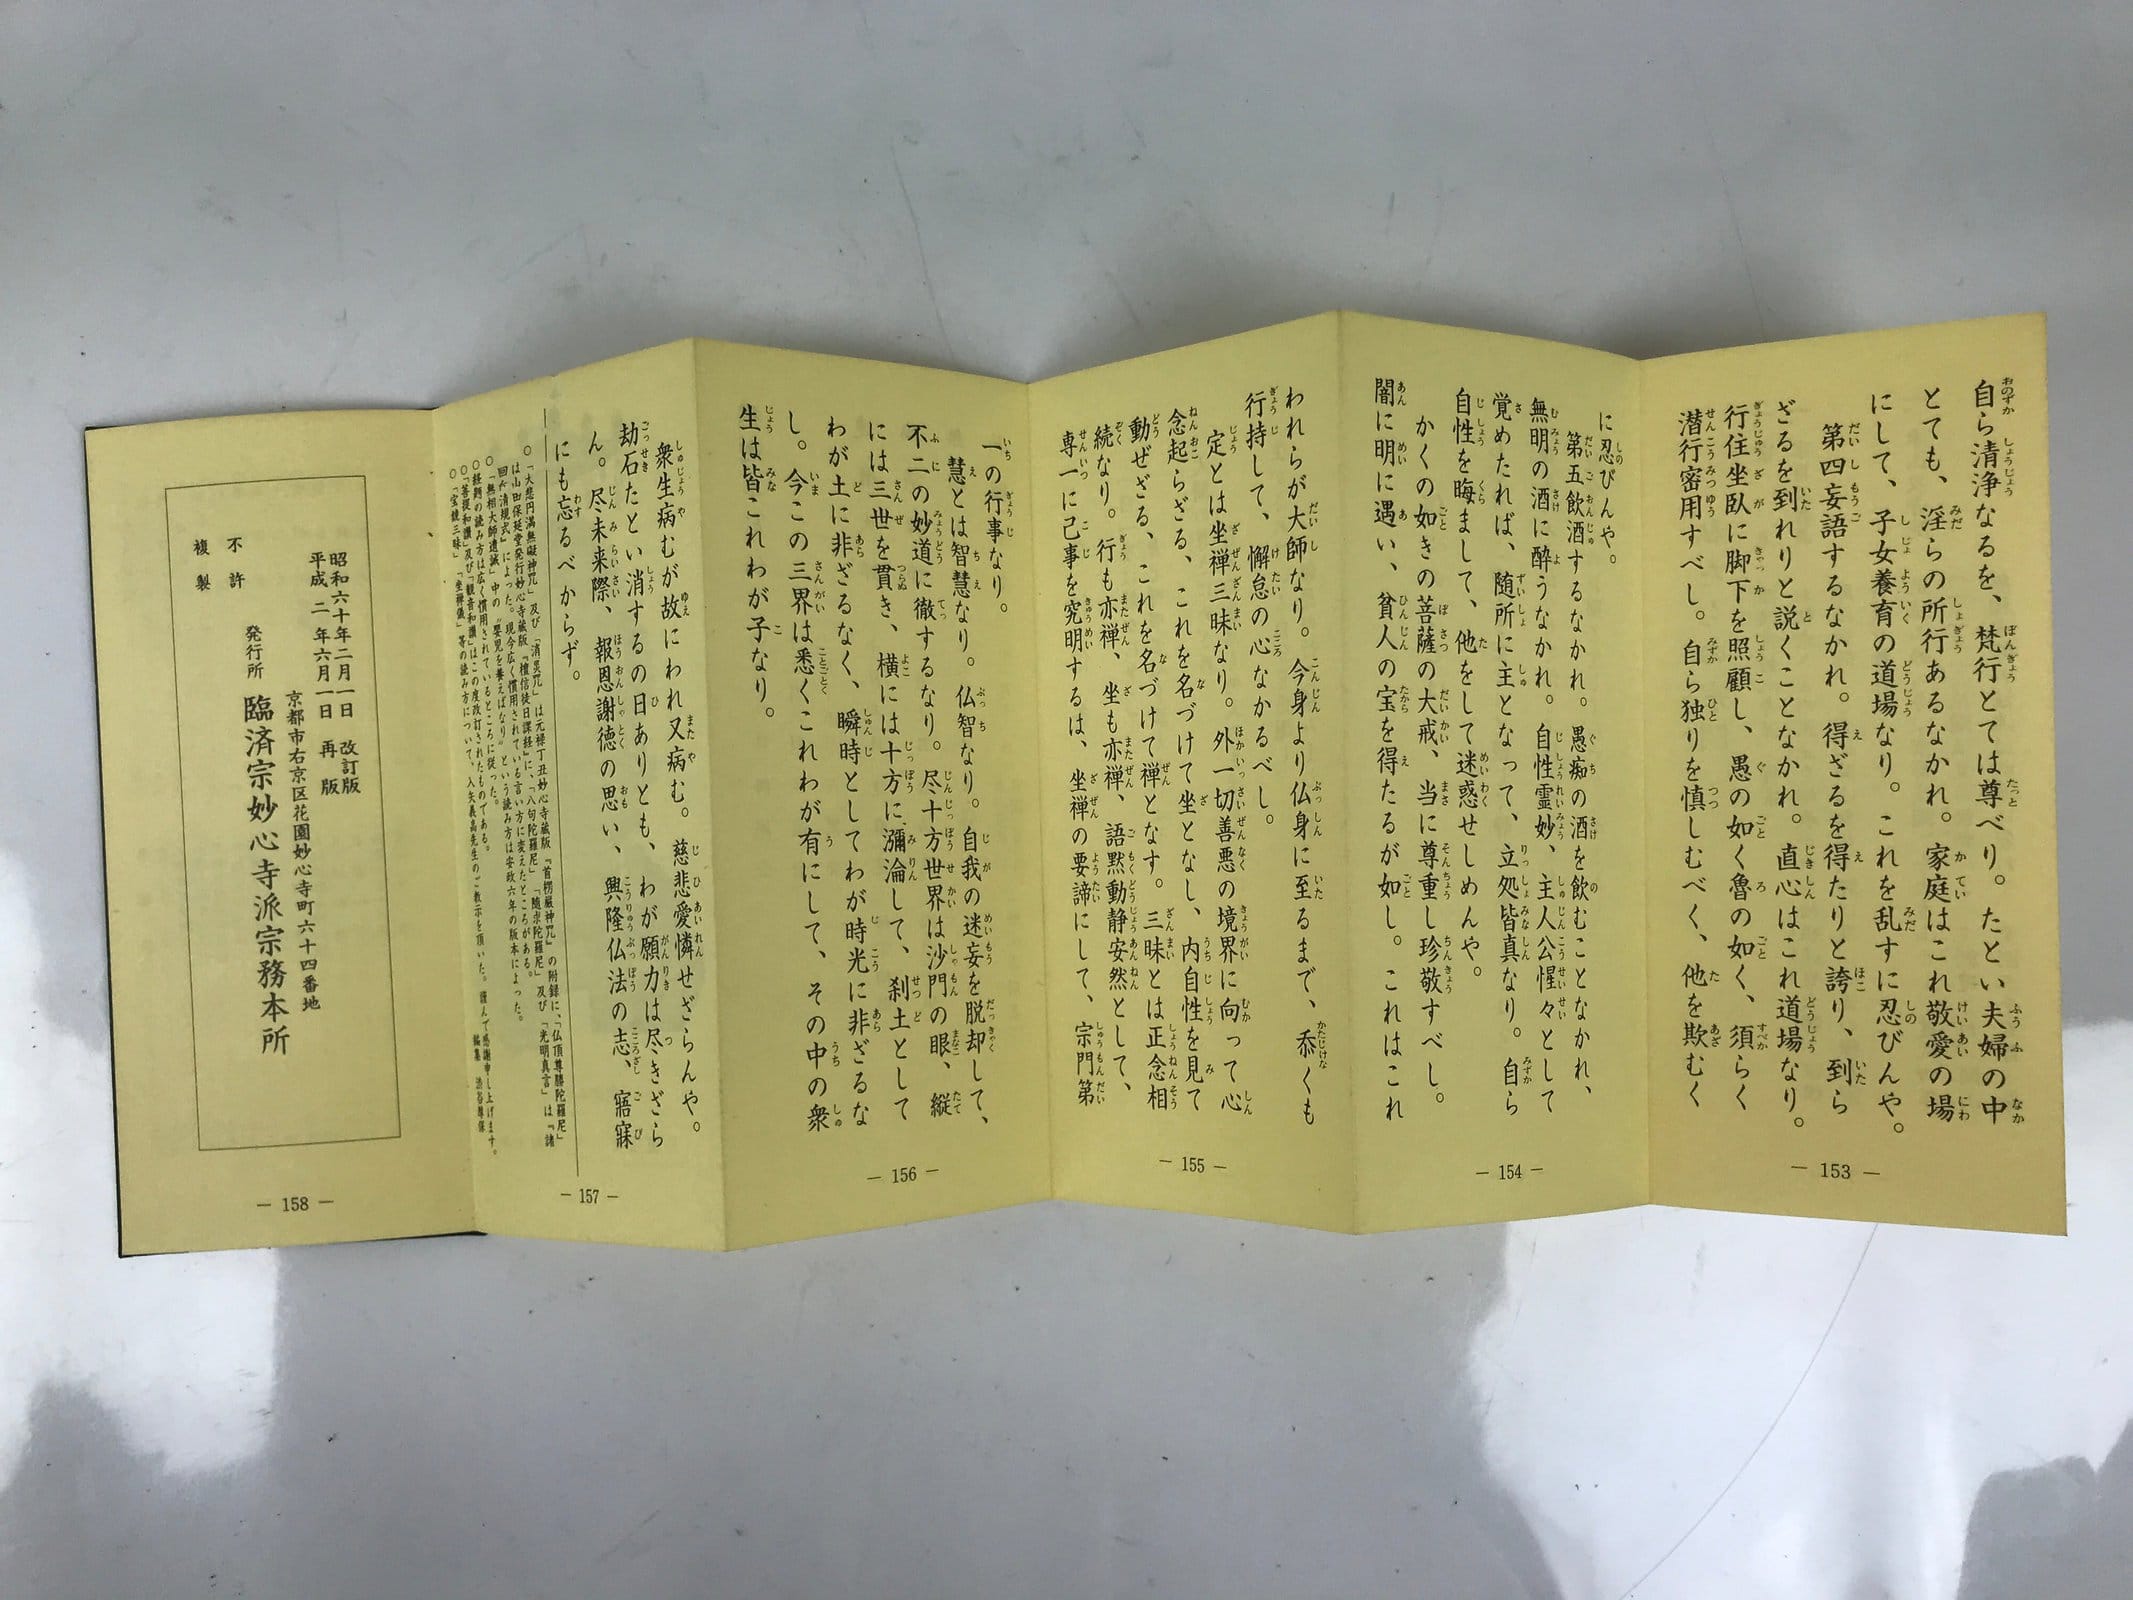 自ら清浄なるを、梵行とては尊べり。たとい夫婦の中
とても、淫らの所行あるなかれ。家庭はこれ敬愛の場
にして、子女養育の道場なり。これを乱すに忍びんや。
第四妄語するなかれ。得ざるを得たりと誇り、到ら
ざるを到れりと説くことなかれ。直心はこれ道場なり。
行住坐臥に脚下を照顧し、愚の如く魯の如く、須らく
潜行密用すべし。自ら独りを慎しむべく、他を欺むく
― 153 ―
に忍びんや。
第五飲酒するなかれ。愚痴の酒を飲むことなかれ、
無明の酒に酔うなかれ。自性霊妙、主人公惺々として
覚めたれば、随所に主となって、立処皆真なり。自ら
自性を晦まして、他をして迷惑せしめんや。
かくの如きの菩薩の大戒、当に尊重し珍敬すべし。
闇に明に遇い、貧人の宝を得たるが如し。これはこれ
― 154 ―
われらが大師なり。今身より仏身に至るまで、忝くも
行持して、懈怠の心なかるべし。
定とは坐禅三昧なり。外一切善悪の境界に向って心
念起らざる、これを名づけて坐となし、内自性を見て
動ぜざる、これを名づけて禅となす。三昧とは正念相
続なり。行も亦禅、坐も亦禅、語黙動静安然として、
専一に己事を究明するは、坐禅の要諦にして、宗門第
― 155 ―
一の行事なり。
慧とは智慧なり。仏智なり。自我の迷妄を脱却して、
不二の妙道に徹するなり。尽十方世界は沙門の眼、縦
には三世を貫き、横には十方に瀰淪して、刹土として
わが土に非ざるなく、瞬時としてわが時光に非ざるな
し。今この三界は悉くこれわが有にして、その中の衆
生は皆これわが子なり。
― 156 ―
衆生病むが故にわれ又病む。慈悲愛憐せざらんや。
劫石たとい消するの日ありとも、わが願力は尽きざら
ん。尽未来際、報恩謝徳の思い、興隆仏法の志、寤寐
にも忘るべからず。
○「大悲円満無礙神咒」及び「消災咒」は元禄丁丑妙心寺蔵版『首楞厳神咒』の附録に、「仏頂尊勝陀羅尼」
は山田保延堂発行妙心寺蔵版『檀信徒日課経』に、「八句陀羅尼」「随求陀羅尼」及び「光明真言」は『諸
回向清規式』によった。現今広く慣用されている言い方に変えたところがある。
○「無相大師遺誡」中の〝嬰児を養えばなり〟という読み方は安政六年の版本によった。
○経題の読み方は広く慣用されているところに従った。
○「菩提和讃」及び「観音和讃」はこの度改訂されたものである。
○「宝鏡三昧」「坐禅儀」等の読み方について、入矢義高先生のご教示を頂いた。謹んで感謝申し上げます。
編集
― 157 ―
昭和六十年二月一日 改訂版
平成 二 年六月一日 再 版
京都市右京区花園妙心寺町六十四番地
発行所 臨済宗妙心寺派宗務本所
不許
複製
― 158 ―